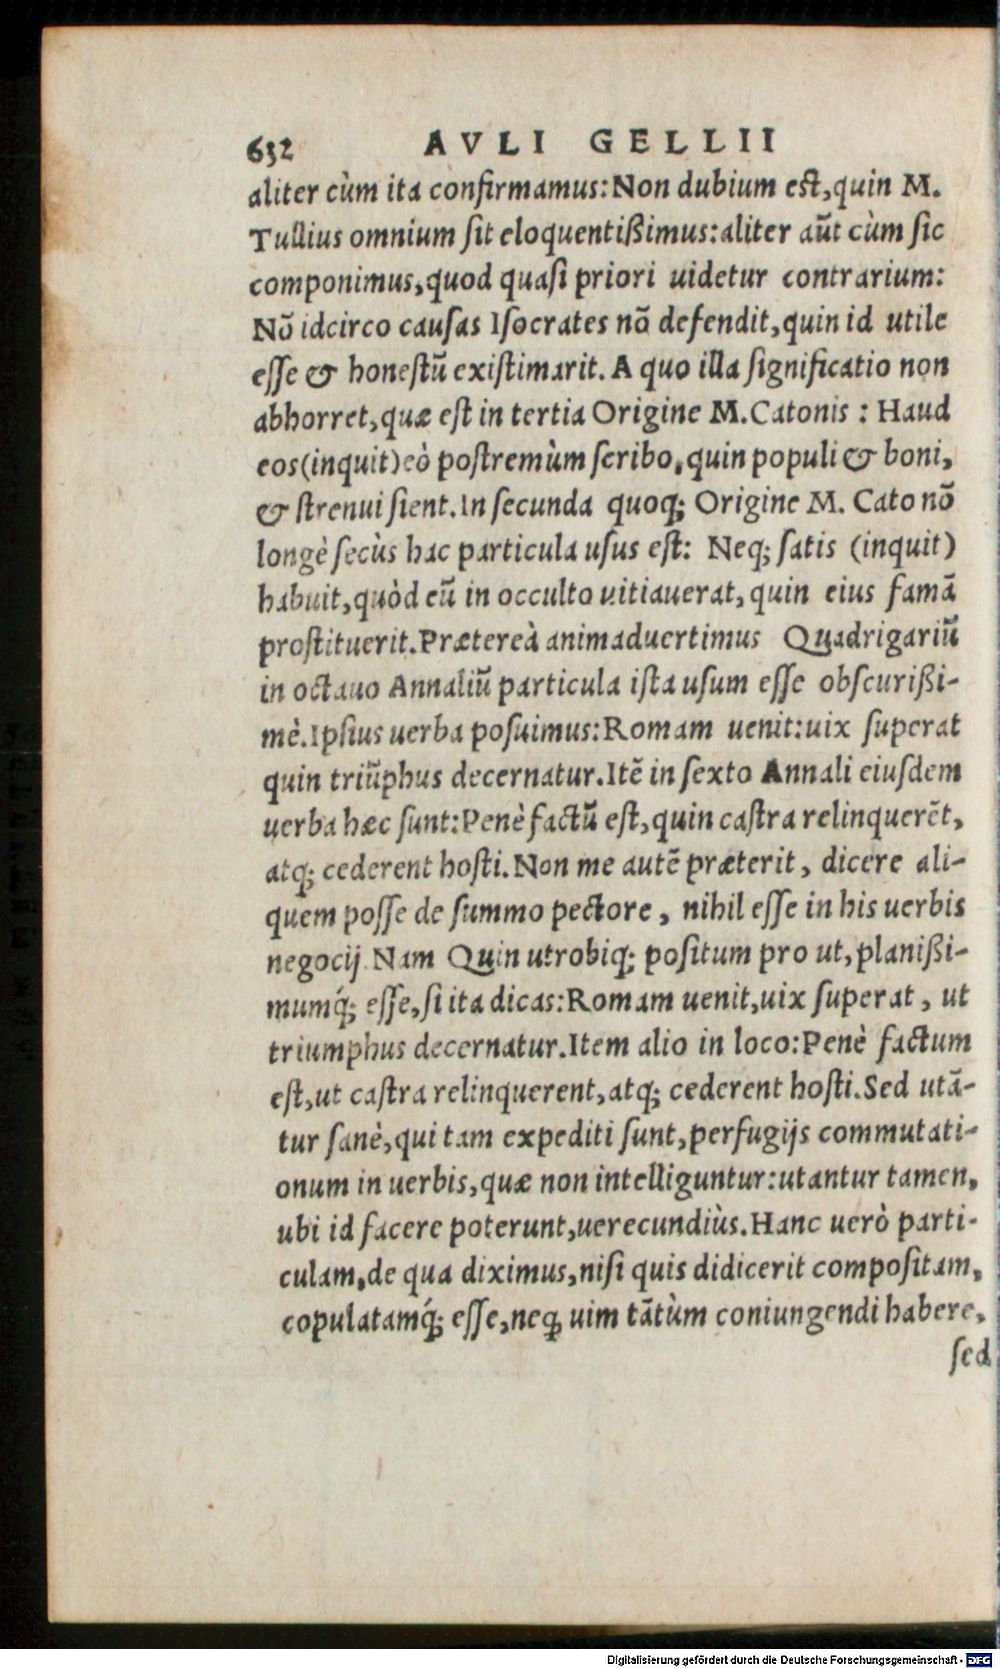 632 AVLI GELLII
aliter cùm ita confirmamus: Non dubium est, quin M.
Tullius omnium sit eloquentißimus: aliter aūt cùm sic
componimus, quod quasi priori uidetur contrarium:
Nō idcirco causas Isocrates nō defendit, quin id utile
esse & honestū existimarit. A quo illa significatio non
abhorret, quæ est in tertia Origine M. Catonis : Haud
eos (inquit) eò postremùm scribo, quin populi & boni,
& strenui sient. In secunda quoq; Origine M. Cato nō
longè secùs hac particula usus est: Neq; satis (inquit)
habuit, quòd eū in occulto uitiauerat, quin eius famā
prostituerit. Prætereà animaduertimus Quadrigariū
in octauo Annaliū particula ista usum esse obscurißi-
mè. Ipsius uerba posuimus: Romam uenit: uix superat
quin triūphus decernatur. Itē in sexto Annali eiusdem
uerba hæc sunt: Penè factū est, quin castra relinquerēt,
atq; cederent hosti. Non me autē præterit, dicere ali-
quem posse de summo pectore, nihil esse in his uerbis
negocij. Nam Quin utrobiq; positum pro ut, planißi-
mumq́; esse, si ita dicas: Romam uenit, uix superat, ut
triumphus decernatur. Item alio in loco: Penè factum
est, ut castra relinquerent, atq; cederent hosti. Sed utā-
tur sanè, qui tam expediti sunt, perfugijs commutati-
onum in uerbis, quæ non intelliguntur: utantur tamen,
ubi id facere poterunt, uerecundiùs. Hanc uerò parti-
culam, de qua diximus, nisi quis didicerit compositam,
copulatamq́; esse, neq; uim tātùm coniungendi habere,
sed
Digitalisierung gefördert durch die Deutsche Forschungsgemeinschaft - DFG